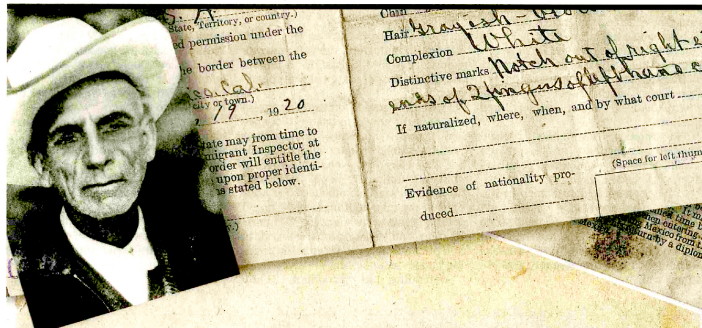 S. A.
State, Territory, or country.)
ed permission under the
he border between the
Cal.
city or town.)
19, 1920
tate may from time to
migrant Inspector at
order will entitle the
upon proper identi-
as stated below.
Chin
Hair Grayesh-
Complexion White
Distinctive marks Notch out of right e
ends of 2 fingers of left hand c
If naturalized, where, when, and by what court
Evidence of nationality pro-
duced
(Space for left thum
time b
n entering
Mexico from t
return by a diplom